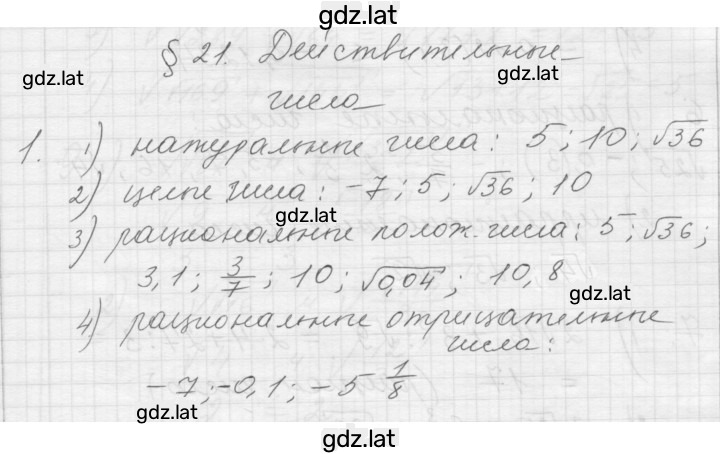 gdz.lat
§ 21. Действительные
gdz.lat gdz.lat
числа
1. 1) натуральные числа: 5; 10; √36
2) целые числа: -7; 5; √36; 10
gdz.lat
3) рациональные полож. числа: 5; √36;
3,1; 3/7; 10; √0,04; 10,8
gdz.lat
4) рациональные отрицательные
числа:
-7; -0,1; -5 1/8
gdz.lat
gdz.lat